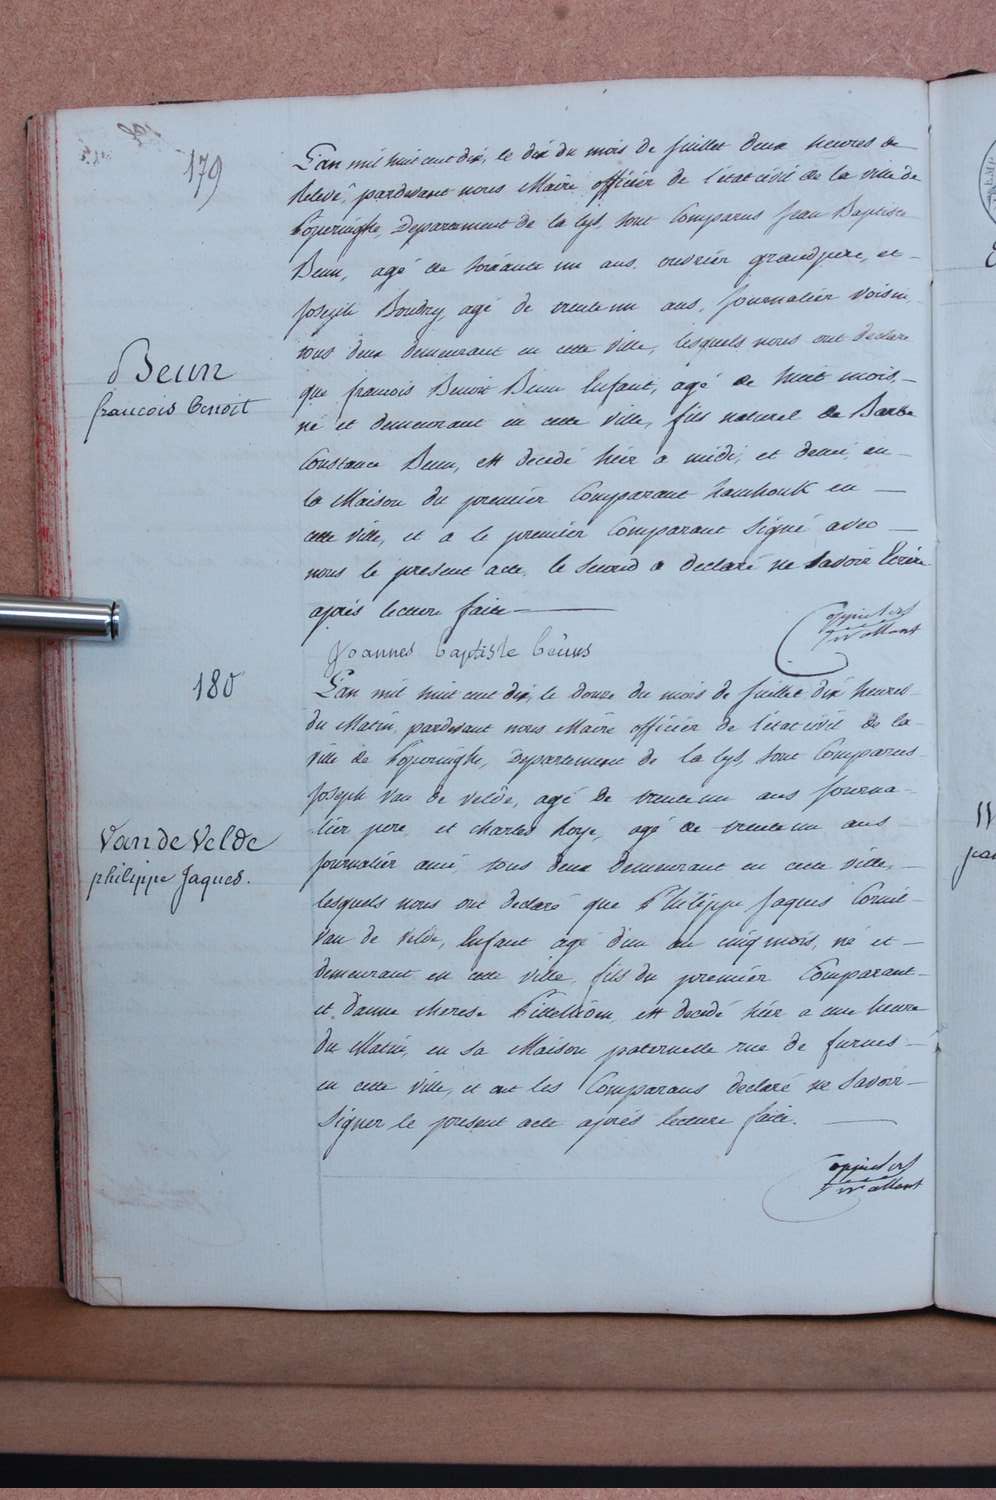 179
L'an mil huit cent dix, le dix du mois de Juillet deux heures de
Relevé, pardevant nous Maire officier de l'état civil de la ville de
Poperinghe, Departement de la Lys, sont Comparus Jean Baptiste
Beun, agé de soixante un ans, ouvrier grandpere, et
Joseph Boudry, agé de trente un ans, Journalier voisin,
tous deux demeurant en cette ville, lesquels nous ont declaré
Beun
francois benoit
que francois Benoit Beun Enfant, agé de huit mois,
né et demeurant en cette ville, fils naturel de Barbe
Constance Beun, est decedé hier a midi, et demi, en
la Maison du premier Comparant en
cette ville, et a le premier Comparant signé avec
nous le present acte, le second a declaré ne savoir Ecrire
aprés lecture faite
Joannes baptiste beuns
180
L'an mil huit cent dix, le douze du mois de Juillet dix heures
du Matin, pardevant nous Maire officier de l'état civil de la
ville de Poperinghe, Departement de la Lys, sont Comparus
Joseph Van de Velde, agé de trente un ans Journa-
lier pere, et Charles Roye, agé de trente un ans
Van de Velde
philippe Jaques.
Journalier ami, tous deux demeurant en cette ville,
lesquels nous ont declaré que Philippe Jaques Cornil
Van de Velde, Enfant agé d'un an cinq mois, né et
demeurant en cette ville, fils du premier Comparant
et d'anne therese est decedé hier a une heure
du Matin, en sa Maison paternelle rue de furnes
en cette ville, et ont les Comparans declaré ne savoir
signer le present acte aprés lecture faite.